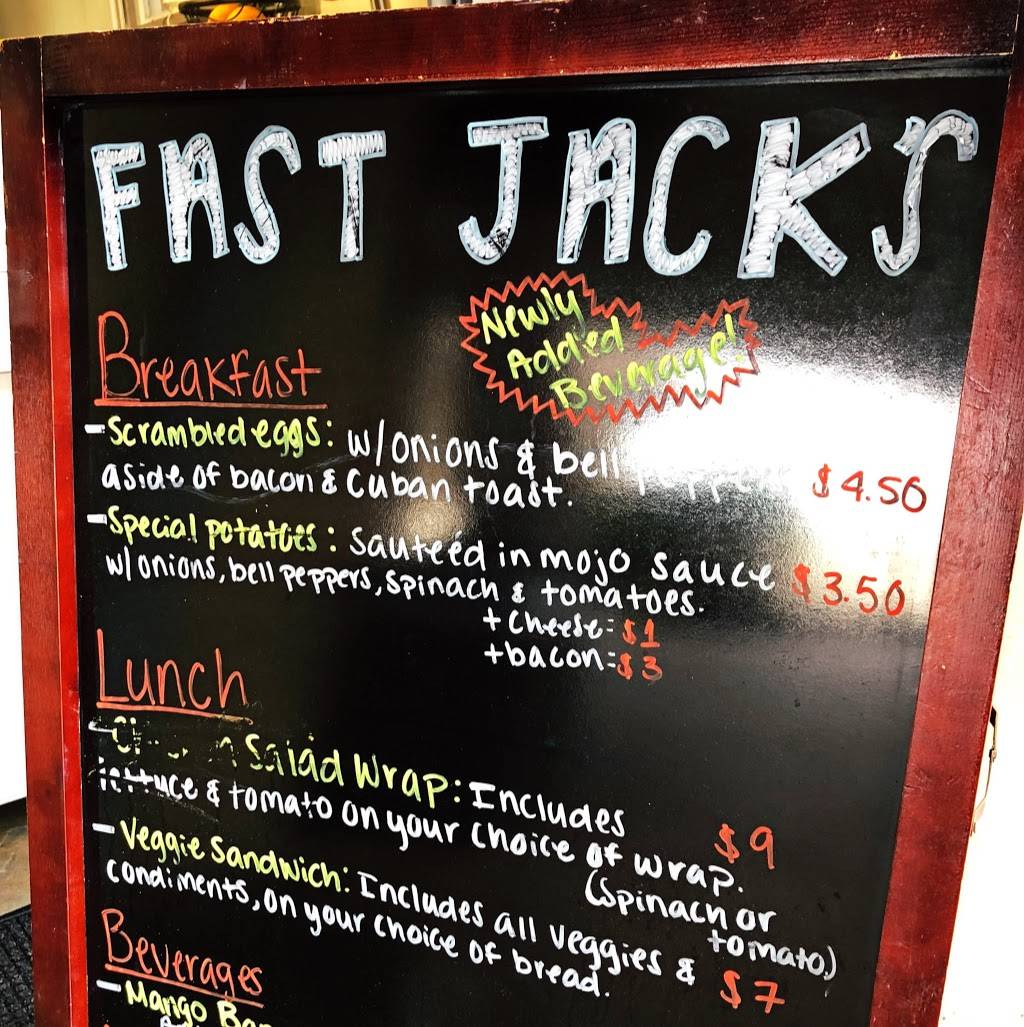 FAST JACK'S
Newly
Added
Beverage!
Breakfast
- Scrambled eggs: w/onions & bell peppers $4.50
aside of bacon & Cuban toast.
- Special potatoes: Sauteéd in mojo sauce $3.50
w/onions, bell peppers, spinach & tomatoes.
+ Cheese = $1
+ bacon = $3
Lunch
- Salad Wrap: Includes
lettuce & tomato on your choice of wrap. $9
(spinach or
tomato)
- Veggie Sandwich: Includes all veggies &
condiments, on your choice of bread. $7
Beverages
- Mango